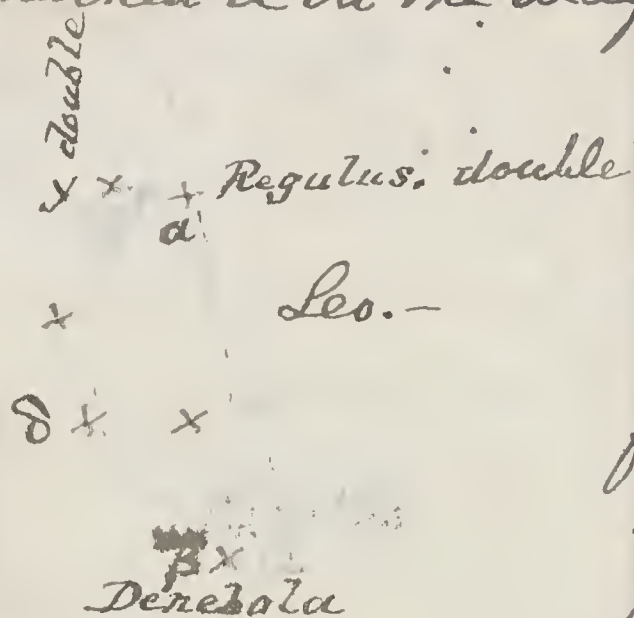 double
Regulus. double
a
Leo.-
δ
β
Denebola